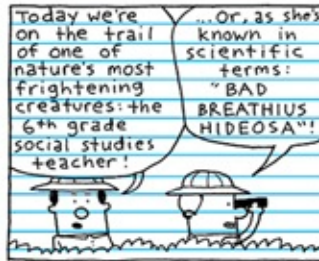 Today we're
on the trail
of one of
nature's most
frightening
creatures: the
6th grade
social studies
teacher!
...Or, as she's
known in
scientific
terms:
"BAD
BREATHIUS
HIDEOSA"!